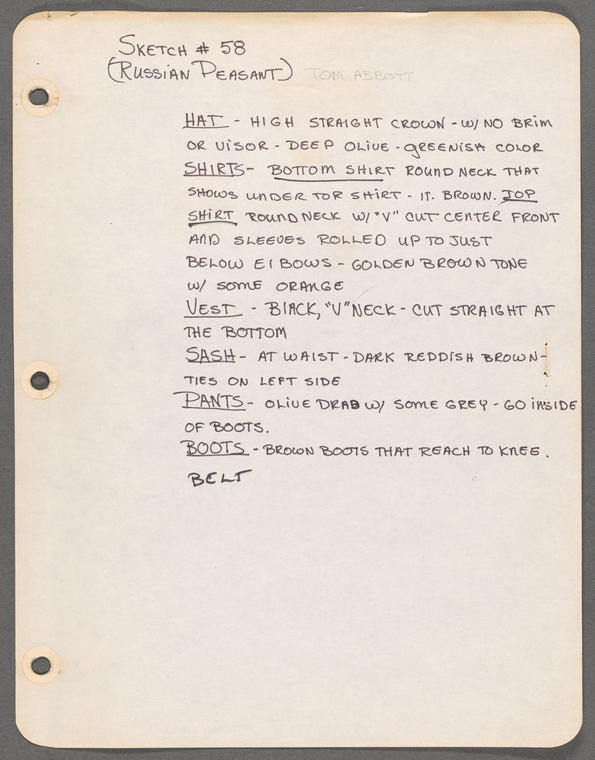 SKETCH # 58
(RUSSIAN PEASANT) TOM ABBOTT
HAT - HIGH STRAIGHT CROWN - W/ NO BRIM
OR VISOR - DEEP OLIVE - GREENISH COLOR
SHIRTS - BOTTOM SHIRT ROUND NECK THAT
SHOWS UNDER TOP SHIRT - LT. BROWN. TOP
SHIRT ROUND NECK W/ "V" CUT CENTER FRONT
AND SLEEVES ROLLED UP TO JUST
BELOW ELBOWS - GOLDEN BROWN TONE
W/ SOME ORANGE
VEST - BLACK, "V" NECK - CUT STRAIGHT AT
THE BOTTOM
SASH - AT WAIST - DARK REDDISH BROWN -
TIES ON LEFT SIDE
PANTS - OLIVE DRAB W/ SOME GREY - GO INSIDE
OF BOOTS.
BOOTS - BROWN BOOTS THAT REACH TO KNEE.
BELT